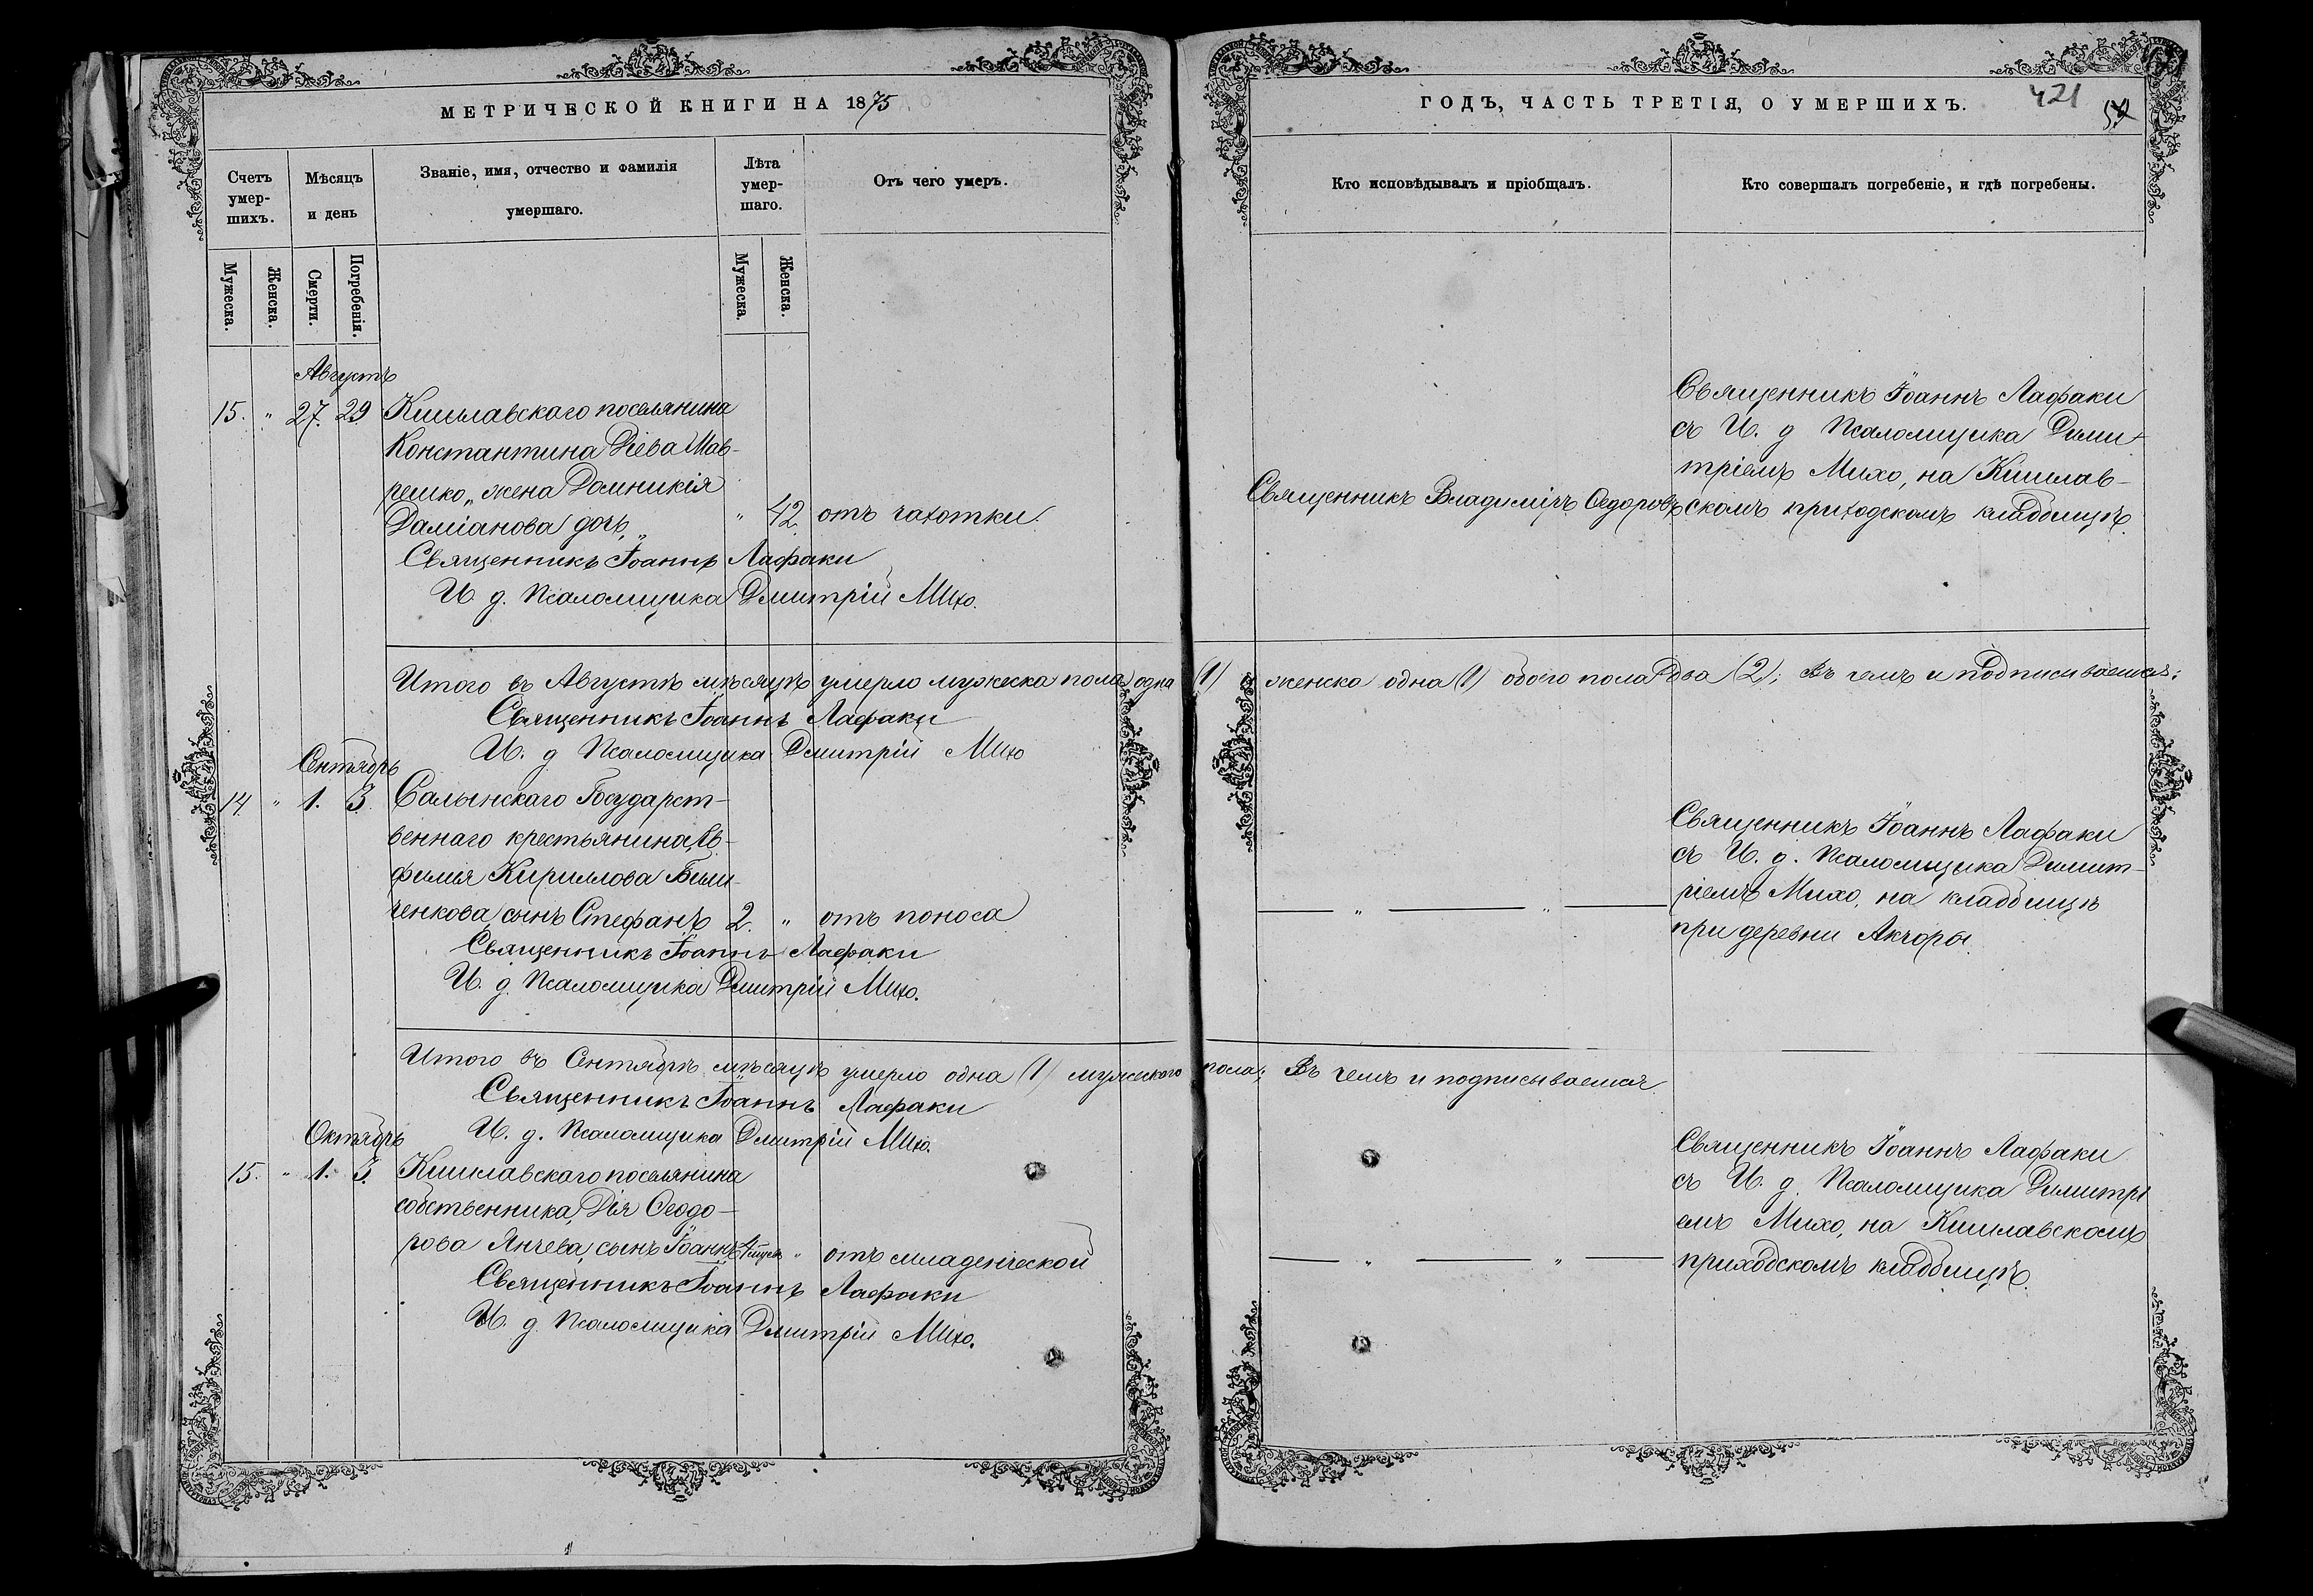 МЕТРИЧЕСКОЙ КНИГИ НА 1875
Счетъ умер-шихъ.
Мѣсяцъ и день
Званіе, имя, отчество и фамилія умершаго.
Лѣта умер-шаго.
Отъ чего умеръ.
Мужеска.
Женска.
Смерти.
Погребенія.
Мужеска.
Женска.
Августъ
15. " 27. 29 Кишлавскаго поселянина
Константина Діева Мав-
решко „ жена Домникія
Даміанова дочь „ " 42. отъ чахотки.
Священникъ Іоаннъ Лафаки
И. д. Псаломщика Дмитрій Михо.
Итого въ Августѣ мѣсяцѣ умерло мужеска пола одна (1)
Священникъ Іоаннъ Лафаки
И. д Псаломщика Дмитрій Михо
Сентябрь
14. " 1. 3. Салынскаго Государст-
веннаго крестьянина Ев-
фимія Кириллова
сынъ Стефанъ 2. " отъ поноса
Священникъ Іоаннъ Лафаки
И. д. Псаломщика Дмитрій Михо.
Итого въ Сентябрѣ мѣсяцѣ умерло одна (1) мужескаго
Священникъ Іоаннъ Лафаки
И. д. Псаломщика Дмитрій Михо.
Октябрь
15. " 1. 3. Кишлавскаго поселянина
собственника, Дія Ѳеодо-
рова Янчева, сынъ Іоаннъ " отъ младенческой
Священникъ Іоаннъ Лафаки
И. д. Псаломщика Дмитрій Михо.
ГОДЪ, ЧАСТЬ ТРЕТІЯ, О УМЕРШИХЪ.
421
Кто исповѣдывалъ и пріобщалъ.
Кто совершалъ погребеніе, и гдѣ погребены.
Священникъ Владиміръ Ѳедоровъ
Священникъ Іоаннъ Лафаки
съ И. д Псаломщика Дими-
тріемъ Михо, на Кишлав-
скомъ приходскомъ кладбищѣ.
женска одна (1) обоего пола два (2); Въ чемъ и подписываемся:
— " — " —
Священникъ Іоаннъ Лафаки
съ И. д. Псаломщика Димит-
ріемъ Михо, на кладбищѣ
при деревни Акчоры.
пола; Въ чемъ и подписываемся
— " — " —
Священникъ Іоаннъ Лафаки
съ И. д. Псаломщика Димитрі
емъ Михо, на Кишлавскомъ
приходскомъ кладбищѣ.